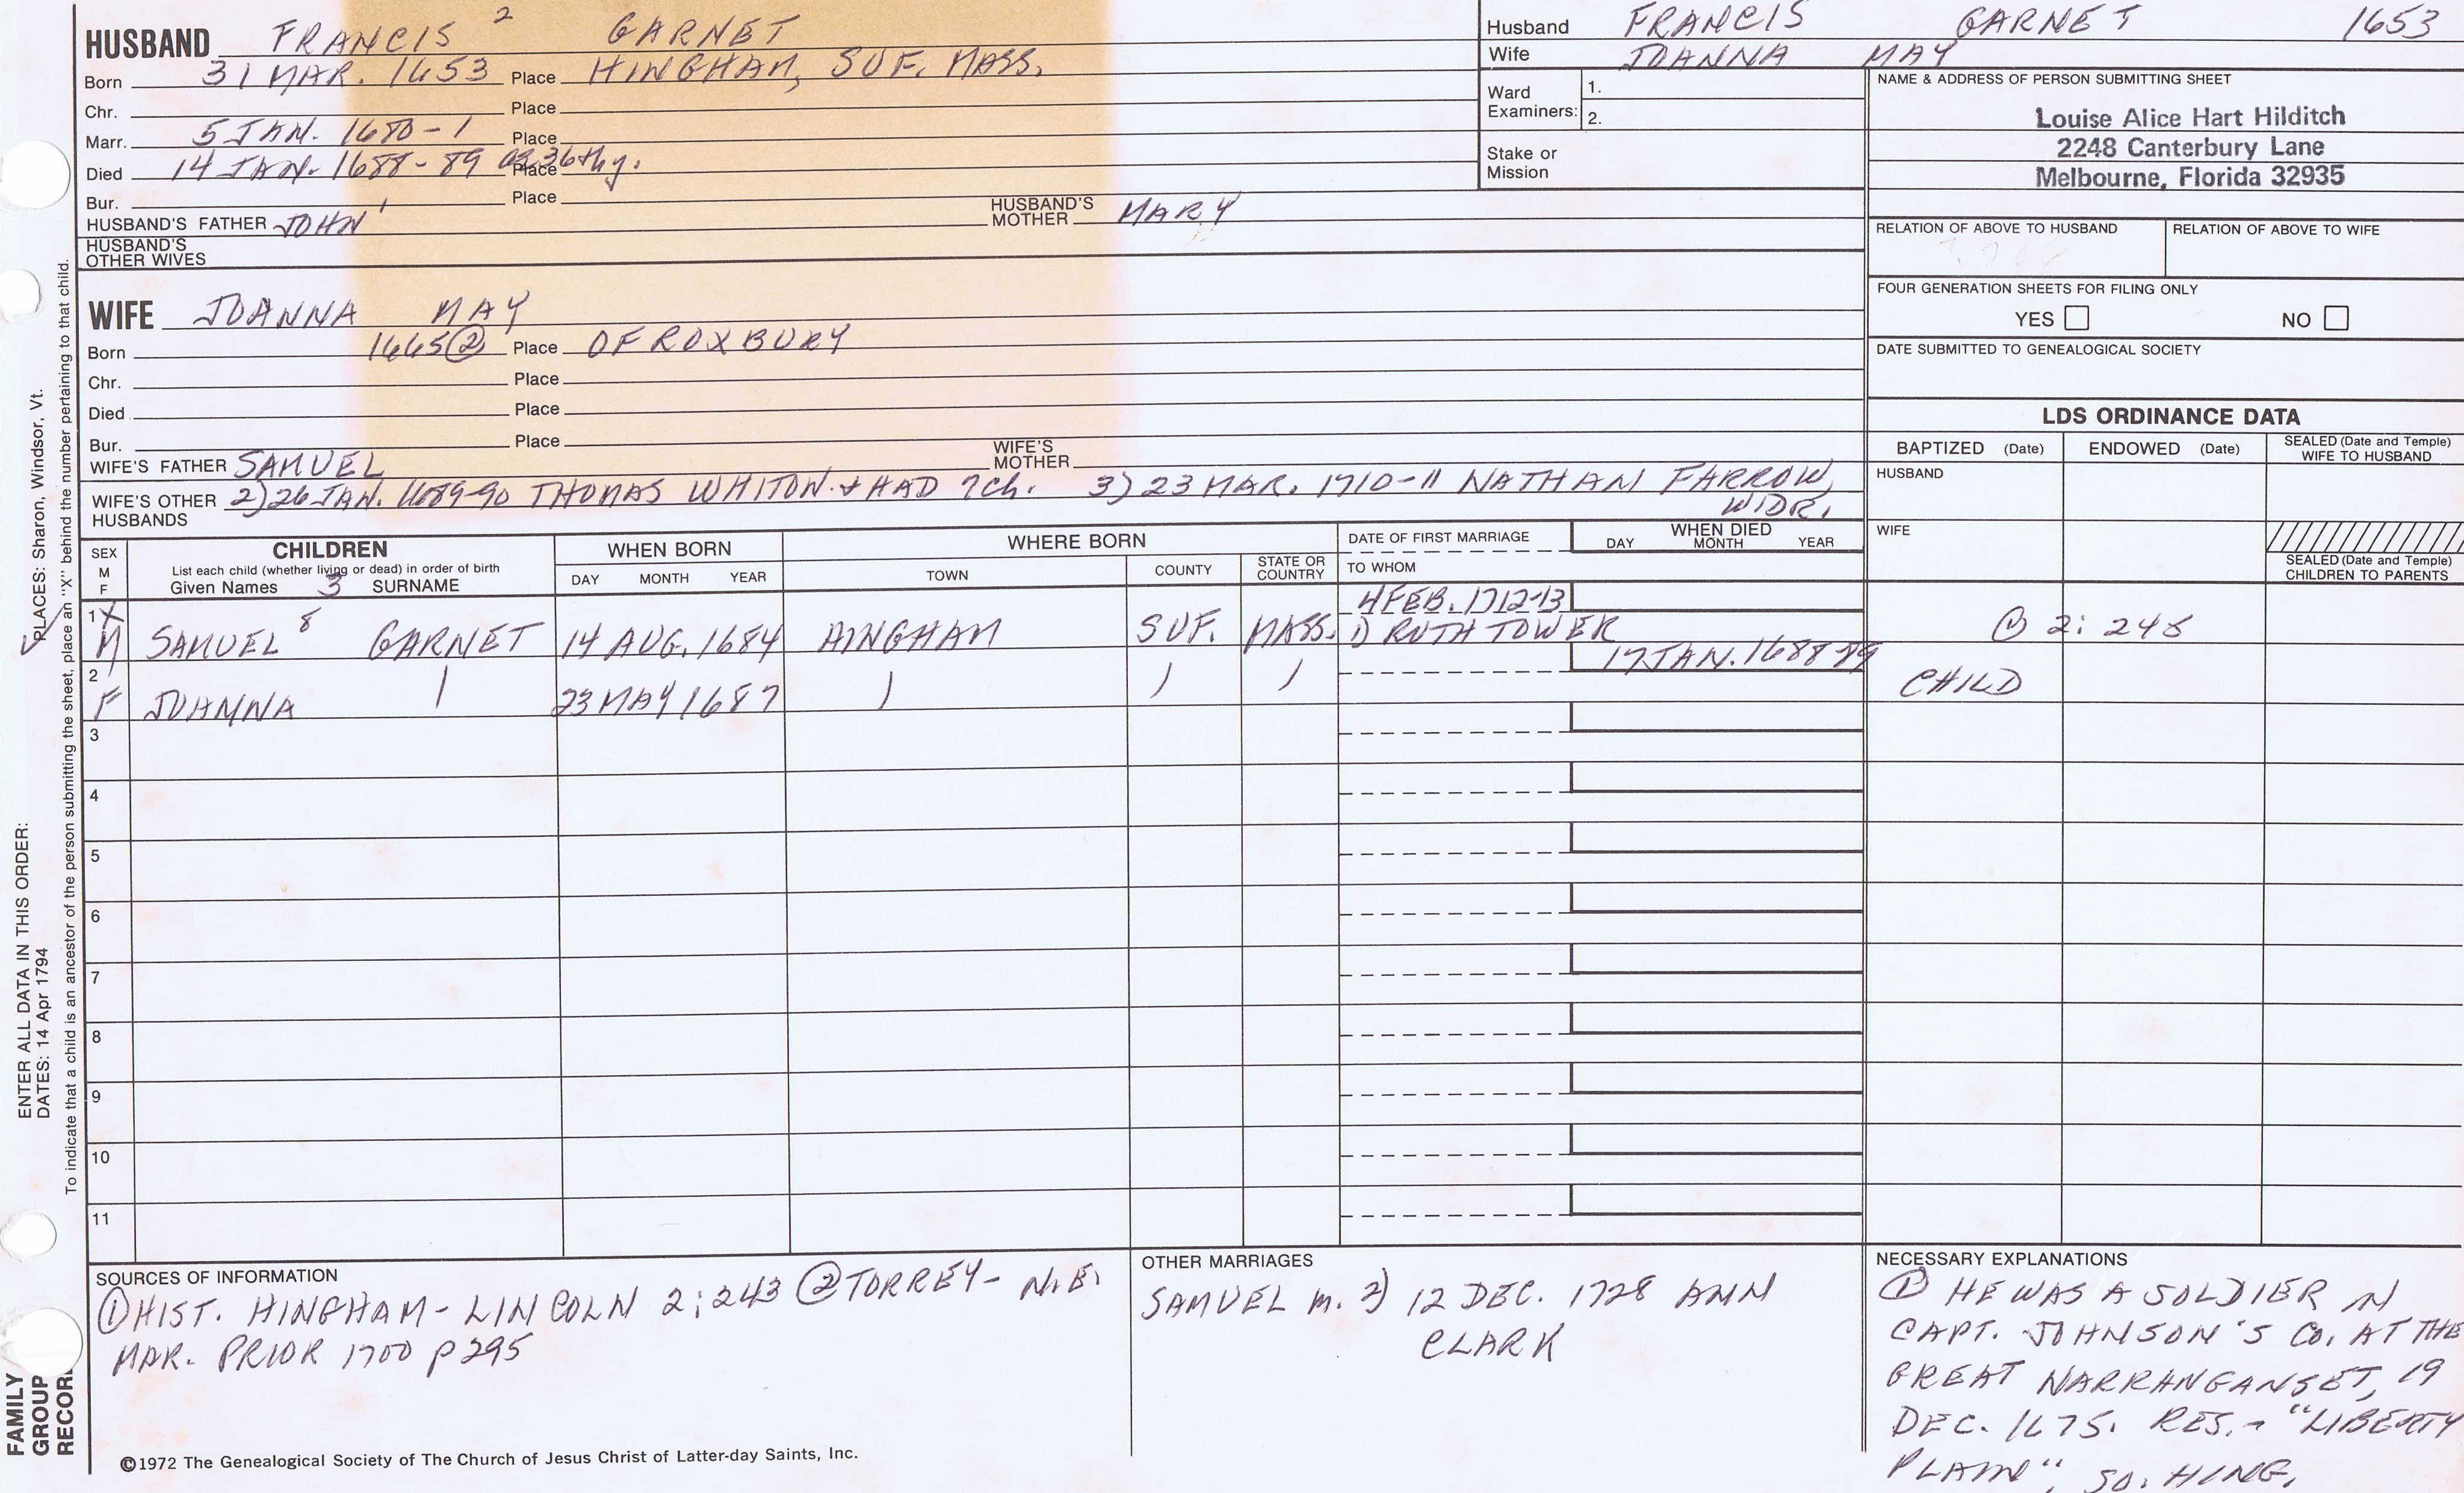 HUSBAND FRANCIS 2 GARNET
Born 31 MAR. 1653 Place HINGHAM, SUF. MASS.
Chr. Place
Marr. 5 JAN. 1680-1 Place
Died 14 JAN. 1688-89 Place
Bur. Place
HUSBAND'S FATHER JOHN 1 HUSBAND'S MOTHER MARY
HUSBAND'S OTHER WIVES
WIFE JOANNA MAY
Born 1665② Place OF ROXBURY
Chr. Place
Died Place
Bur. Place
WIFE'S FATHER SAMUEL WIFE'S MOTHER
WIFE'S OTHER HUSBANDS 2) 26 JAN. 1689-90 THOMAS WHITON & HAD 7 Ch. 3) 23 MAR. 1710-11 NATHAN FARROW,
WIDR.
Husband FRANCIS GARNET 1653
Wife JOANNA MAY
Ward Examiners: 1.
2.
Stake or Mission
NAME & ADDRESS OF PERSON SUBMITTING SHEET
Louise Alice Hart Hilditch
2248 Canterbury Lane
Melbourne, Florida 32935
RELATION OF ABOVE TO HUSBAND RELATION OF ABOVE TO WIFE
FOUR GENERATION SHEETS FOR FILING ONLY
YES NO
DATE SUBMITTED TO GENEALOGICAL SOCIETY
LDS ORDINANCE DATA
BAPTIZED (Date) ENDOWED (Date) SEALED (Date and Temple) WIFE TO HUSBAND
HUSBAND
WIFE
SEALED (Date and Temple)
CHILDREN TO PARENTS
SEX M F
CHILDREN
List each child (whether living or dead) in order of birth
Given Names 3 SURNAME
WHEN BORN
DAY MONTH YEAR
WHERE BORN
TOWN COUNTY STATE OR COUNTRY
DATE OF FIRST MARRIAGE
TO WHOM
WHEN DIED
DAY MONTH YEAR
4 FEB. 1712-13
1 X M SAMUEL 8 GARNET 14 AUG. 1684 HINGHAM SUF. MASS. 1) RUTH TOWER ① 2: 245
17 JAN. 1688-89
2 F JOANNA 23 MAY 1687 CHILD
3
4
5
6
7
8
9
10
11
SOURCES OF INFORMATION
① HIST. HINGHAM - LINCOLN 2:243 ② TORREY - N.E.
MAR. PRIOR 1700 p 295
OTHER MARRIAGES
SAMUEL m. 2) 12 DEC. 1728 ANN
CLARK
NECESSARY EXPLANATIONS
① HE WAS A SOLDIER IN
CAPT. JOHNSON'S CO. AT THE
GREAT NARRANGANSET, 19
DEC. 1675. RES. - "LIBERTY
PLAIN", SO. HING.
©1972 The Genealogical Society of The Church of Jesus Christ of Latter-day Saints, Inc.
ENTER ALL DATA IN THIS ORDER:
DATES: 14 Apr 1794
PLACES: Sharon, Windsor, Vt.
To indicate that a child is an ancestor of the person submitting the sheet, place an "X" behind the number pertaining to that child.
FAMILY
GROUP
RECOR